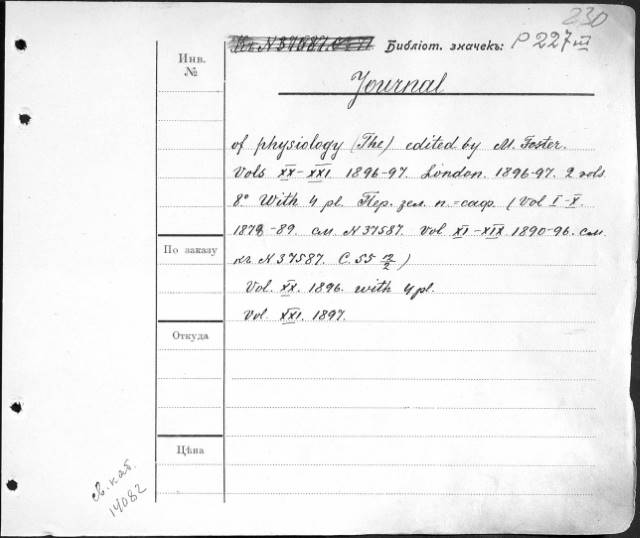 230
Къ N 37587. Библіот. значекъ: P 227 III
Инв. №
Journal
of physiology (The) edited by M. Foster.
Vols XX-XXI 1896-97. London. 1896-97. 2 vols.
8° With 4 pl. Пер. зел. п.=саф. (Vol I-X.
1878-89. см. N 37587. Vol. XI-XIX. 1890-96. см.
къ N 37587. С. 55 12/2)
По заказу
Vol. XX. 1896. with 4 pl.
Vol. XXI. 1897.
Откуда
Цѣна
14082